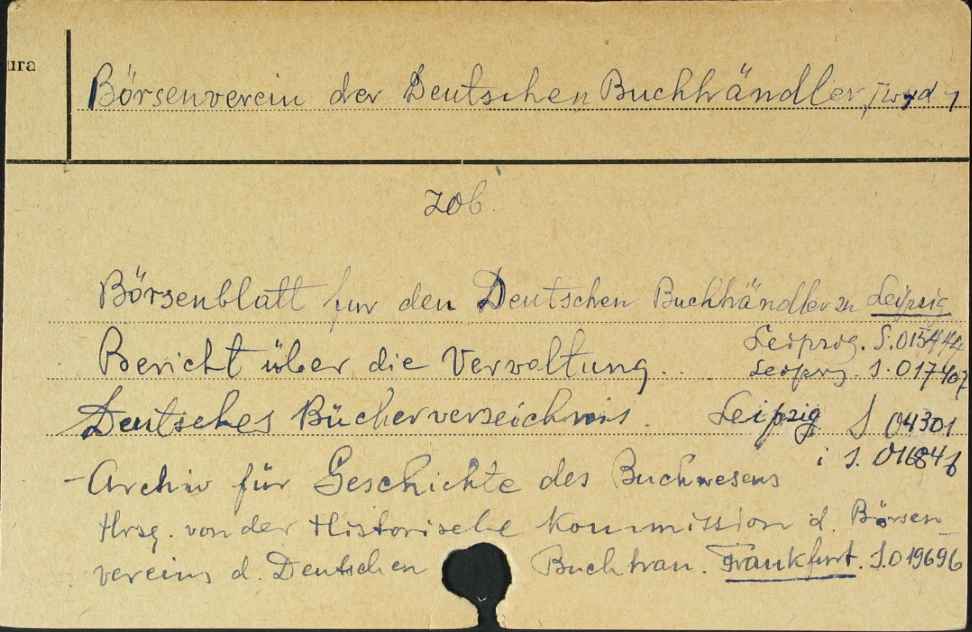 ura
Börsenverein der Deutschen Buchhändler, [wyd.]
zob.
Börsenblatt fur den Deutschen Buchhändler zu Leipzig
Leipzig. S.015444
Bericht über die Verwaltung. Leipzig. S.017407
Deutsches Bücherverzeichnis. Leipzig S 04301
i S.
- Archiv für Geschichte des Buchwesens
Hrsg. von der Historische Kommission d. Börsen-
vereins d. Deutschen Buchhan. Frankfurt. S.019696